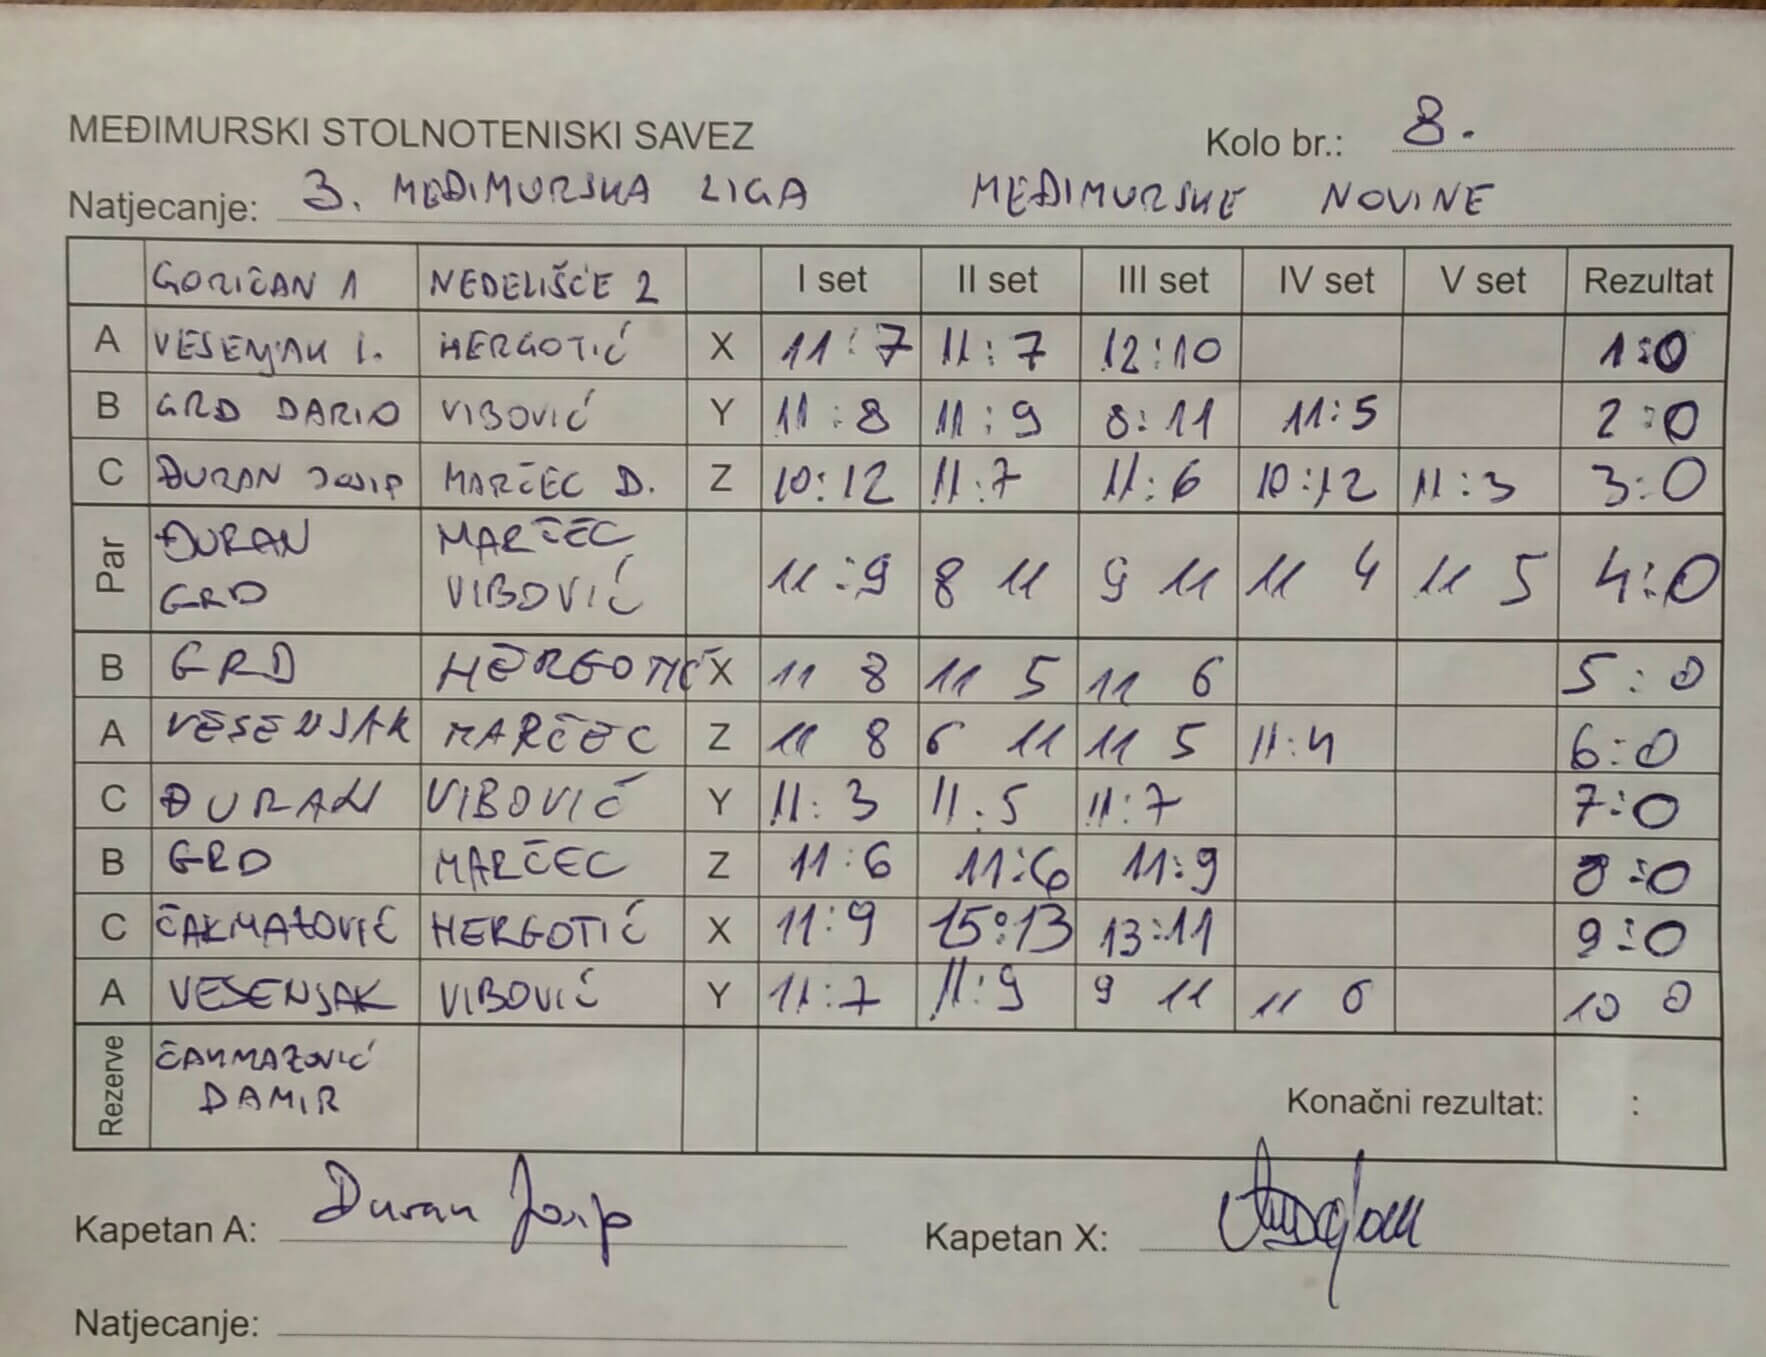 MEĐIMURSKI STOLNOTENISKI SAVEZ Kolo br.: 8.
Natjecanje: 3. MEĐIMURSKA LIGA MEĐIMURSKE NOVINE
GORIČAN 1 NEDELIŠĆE 2 I set II set III set IV set V set Rezultat
A VESENJAK I. HERGOTIĆ X 11:7 11:7 12:10 1:0
B GRD DARIO VIBOVIĆ Y 11:8 11:9 8:11 11:5 2:0
C ĐURAN JOSIP MARČEC D. Z 10:12 11:7 11:6 10:12 11:3 3:0
Par ĐURAN GRD MARČEC VIBOVIĆ 11:9 8 11 9 11 11 4 11 5 4:0
B GRD HERGOTIĆ X 11 8 11 5 11 6 5:0
A VESENJAK MARČEC Z 11 8 6 11 11 5 11:4 6:0
C ĐURAN VIBOVIĆ Y 11:3 11:5 11:7 7:0
B GRD MARČEC Z 11:6 11:6 11:9 8:0
C ČAKMAZOVIĆ HERGOTIĆ X 11:9 15:13 13:11 9:0
A VESENJAK VIBOVIĆ Y 11:7 11:9 9 11 11 6 10 0
Rezerve ČAKMAZOVIĆ DAMIR Konačni rezultat: :
Kapetan A: Đuran Josip Kapetan X:
Natjecanje: